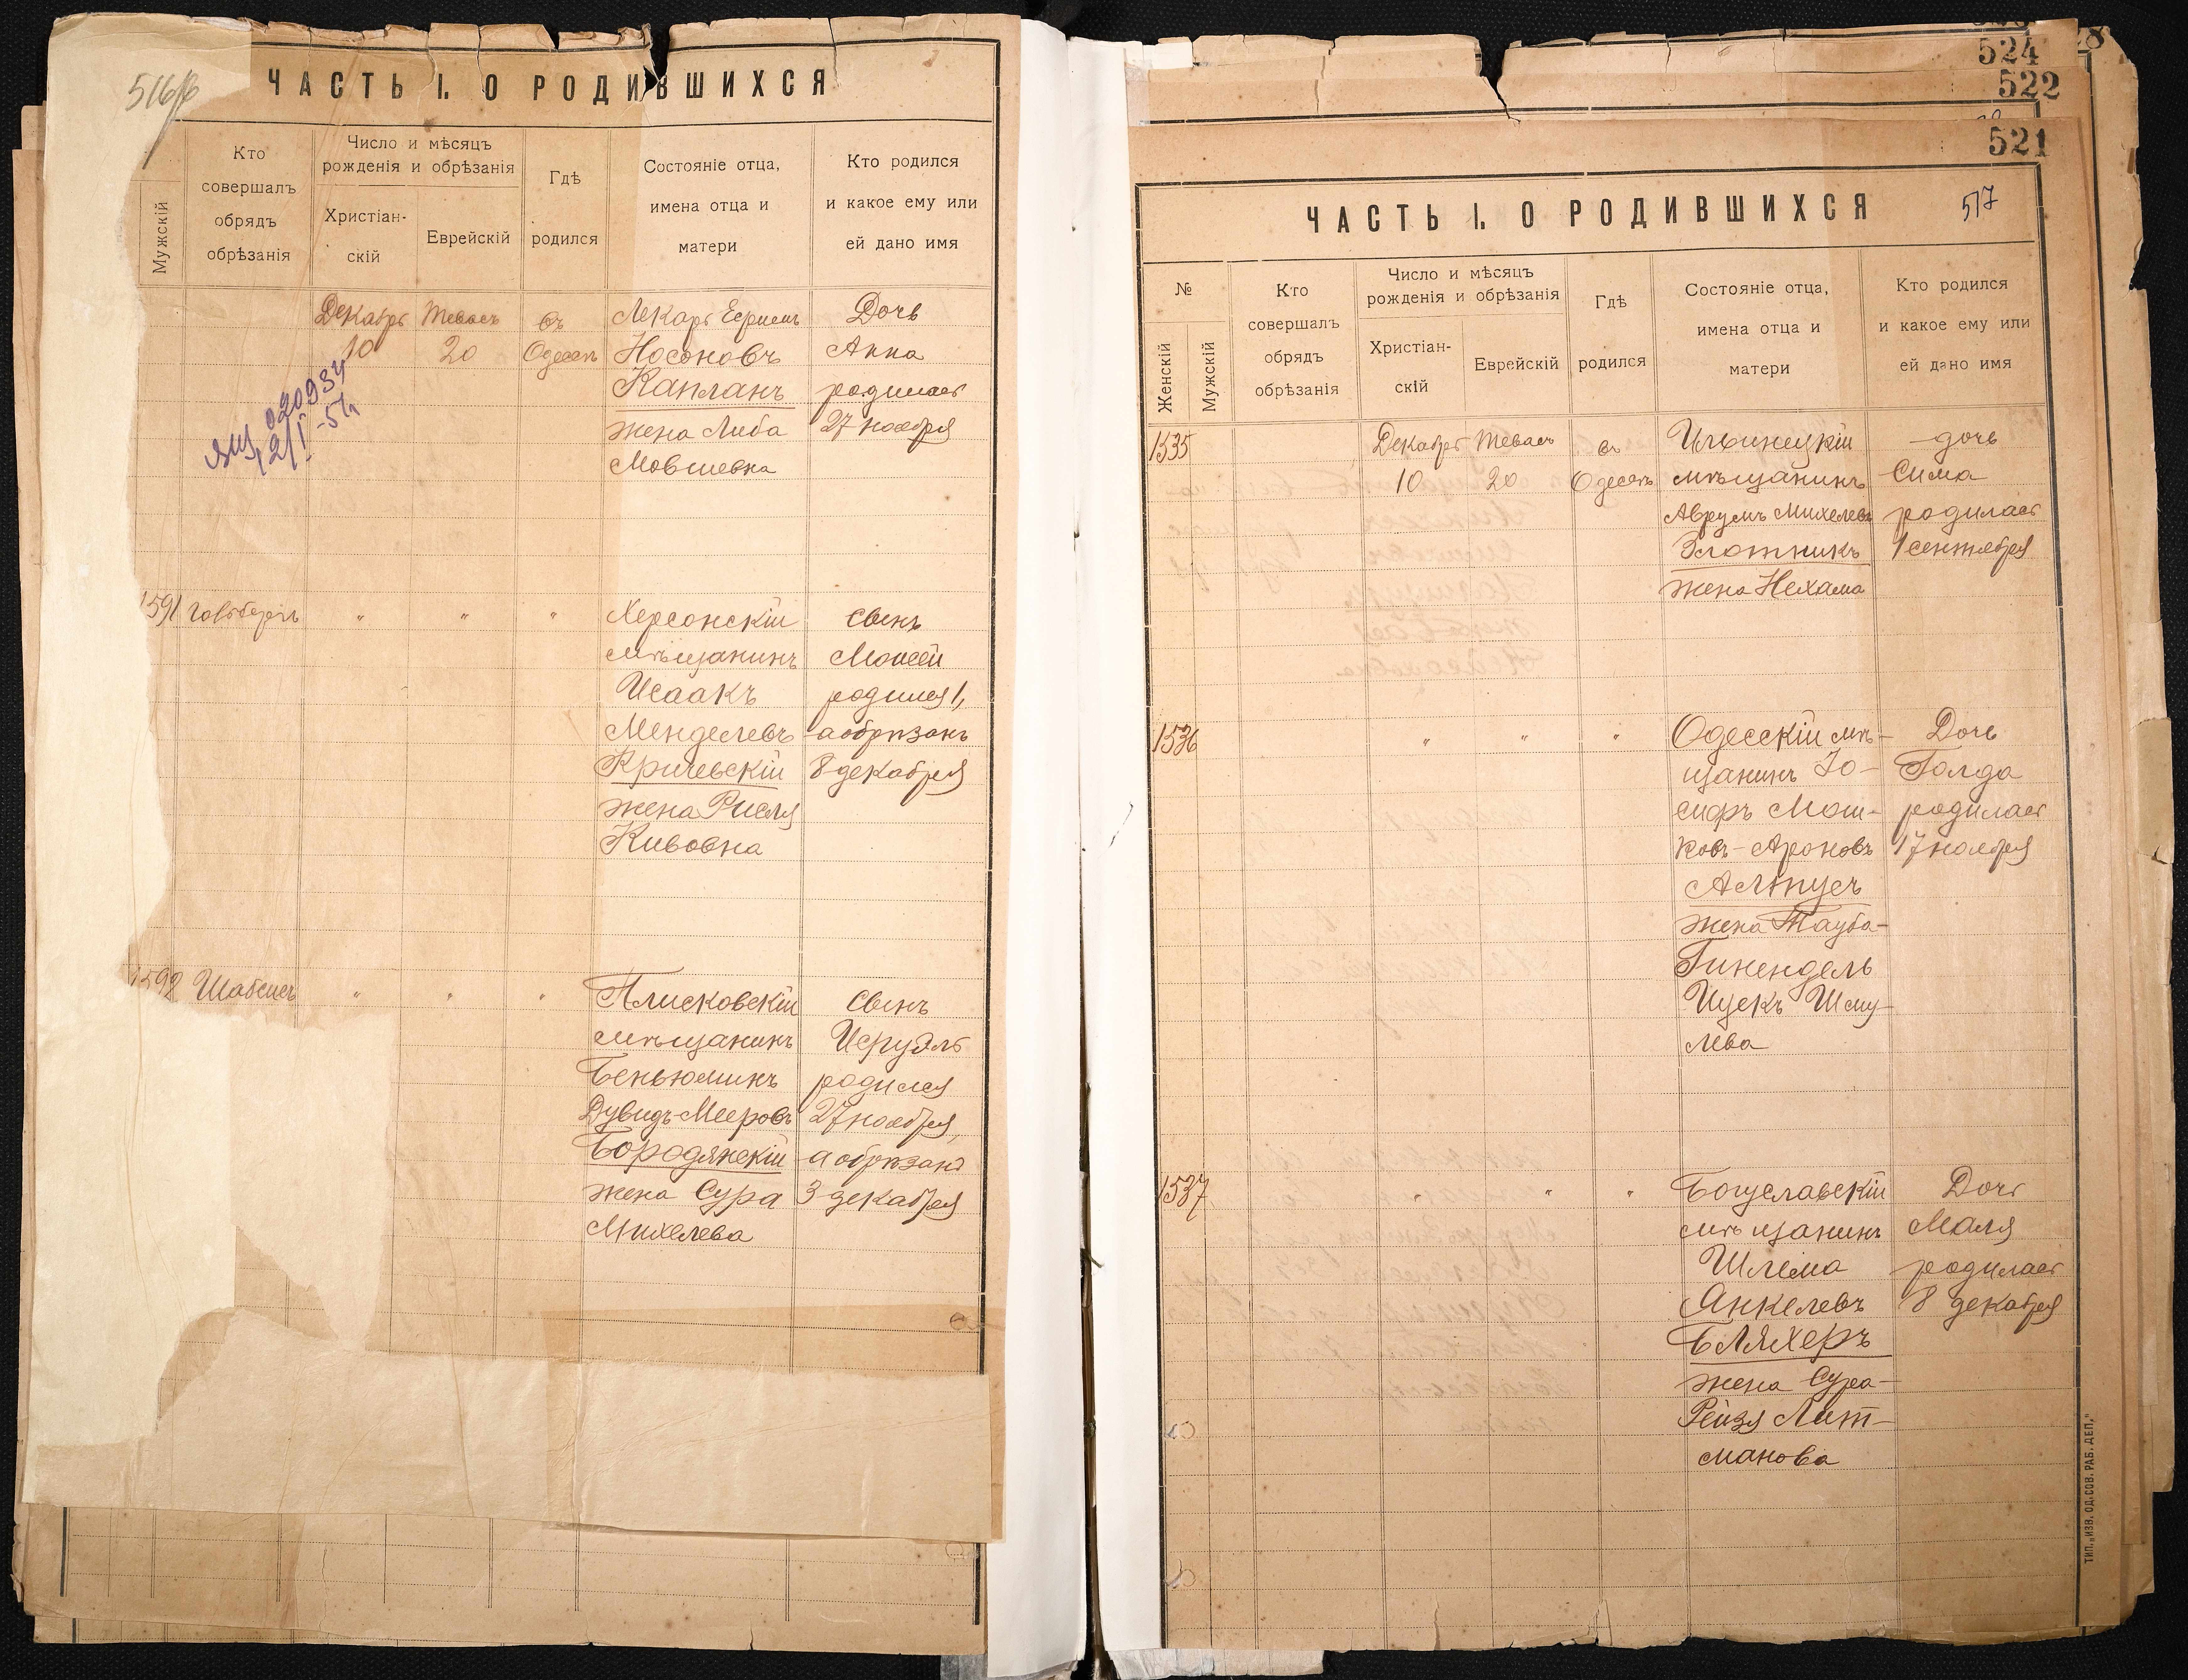 516/б
ЧАСТЬ I. О РОДИВШИХСЯ
Мужскій
Кто
совершалъ
обрядъ
обрѣзанія
Число и мѣсяцъ
рожденія и обрѣзанія
Христіан-
скій
Еврейскій
Гдѣ
родился
Состояніе отца,
имена отца и
матери
Кто родился
и какое ему или
ей дано имя
Декабрь Тевесъ въ Лекарь Дочь
10 20 Одессѣ Носоновъ Анна
Капланъ родилась
жена Либа 27 ноября
Мовшевна
020934
12/I -51
1591 Гольдбергъ " " " Херсонскій Сынъ
мѣщанинъ Моисей
Исаакъ родился 1,
Менделевъ а обрѣзанъ
Кричевскій 8 декабря
жена Рисля
Кивовна
1592 Шабсисъ " " " Плисковскій Сынъ
мѣщанинъ Исруэль
Беньюминъ родился
Дувидъ-Мееровъ 27 ноября,
Бородянскій а обрѣзанъ
жена Сура 3 декабря
Михелева
524
522
521
517
ЧАСТЬ I. О РОДИВШИХСЯ
№
Женскій
Мужскій
Кто
совершалъ
обрядъ
обрѣзанія
Число и мѣсяцъ
рожденія и обрѣзанія
Христіан-
скій
Еврейскій
Гдѣ
родился
Состояніе отца,
имена отца и
матери
Кто родился
и какое ему или
ей дано имя
1535 Декабрь Тевесъ въ Ильинецкій дочь
10 20 Одессѣ мѣщанинъ Сима
Аврумъ Михелевъ родилась
Злотникъ 1 сентября
жена Нехама
1536 " " " Одесскій мѣ- Дочь
щанинъ Іо- Голда
сифъ Мош- родилась
ковъ-Ароновъ 17 ноября
Алтусъ
жена Тауба-
Гинендель
Ицекъ Шму-
лева
1537 " " " Богуславскій Дочь
мѣщанинъ Маля
Шлема родилась
Янкелевъ 8 декабря
Бляхеръ
жена Сура-
Рейзя Лит-
манова
ТИП. „ИЗВ. ОД. СОВ. РАБ. ДЕП."